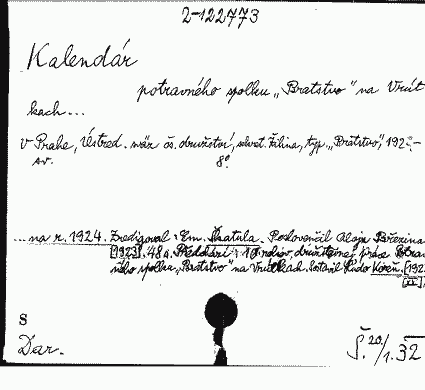 2-122773
Kalendár
potravného spolku „Bratstvo" na Vrút-
kach...
V Prahe, Ústred. sväz čs. družstiev, Žilina, typ. „Bratstvo", 192 -
sv. 8°.
...na r. 1924. Zredigoval: Em. Škatula. Poslovenčil Alojz Březina
[1923]. 48 s. družstevnej práce Potrav-
ného spolku „Bratstvo" na Vrútkach. Sostavil Rudo Koreň. [192
S
Dar. Š. 20/1. 32